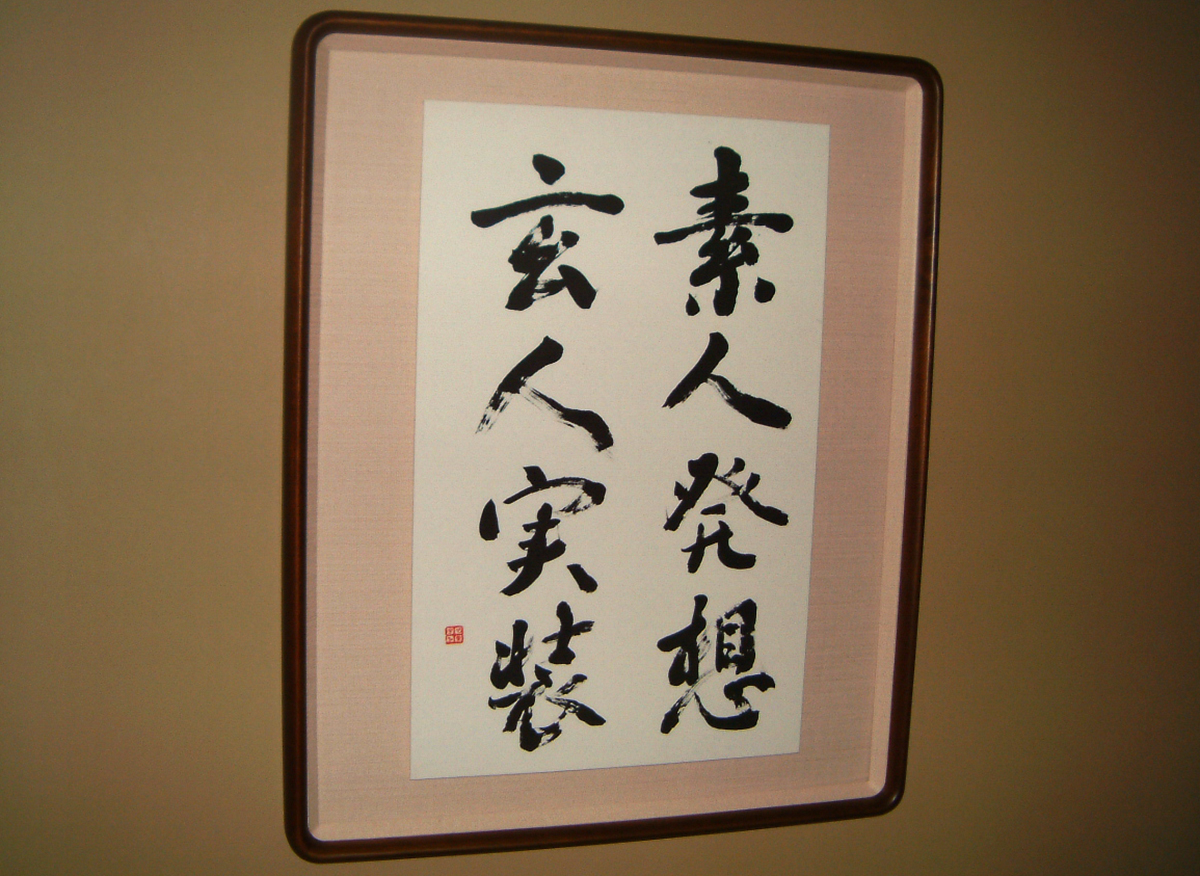 素人発想
玄人実装